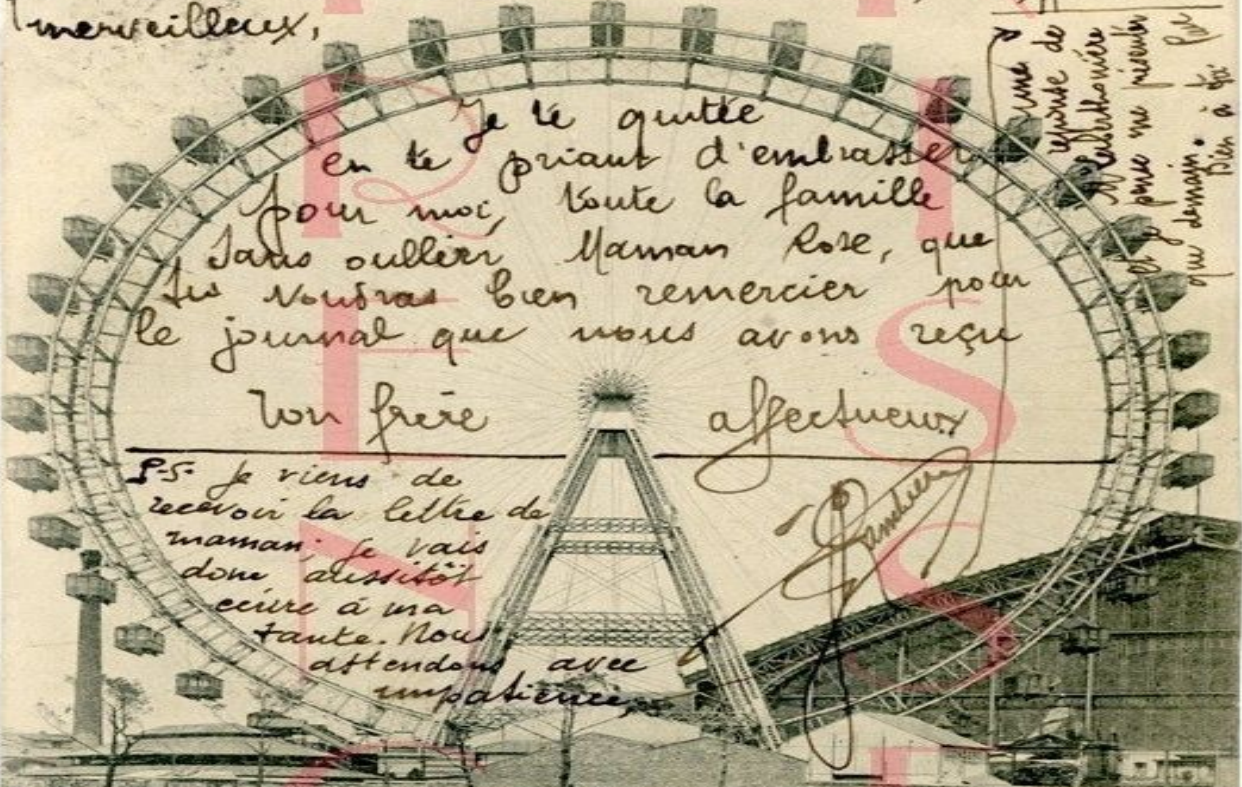 merveilleux,
Je te quitte
en te priant d'embrasser
pour moi, toute la famille
sans oullier Maman Rose, que
tu voudras bien remercier pour
le journal que nous avons reçu
Ton frère affectueux
P-S- Je viens de
recevoir la lettre de
maman; je vais
donc aussitôt
écrire à ma
tante. Nous
attendons avec
impatience,
une
réponse de
et je pense me
que demain.
Bien à toi